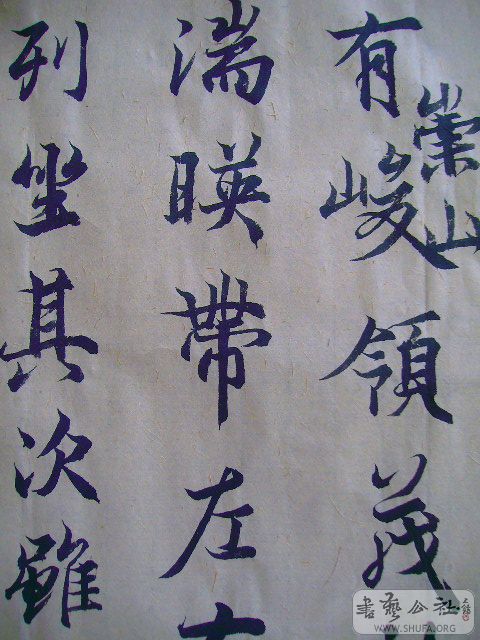 有崇山峻領茂
湍暎帶左右
列坐其次雖
書藝公社
WWW.SHUFA.ORG